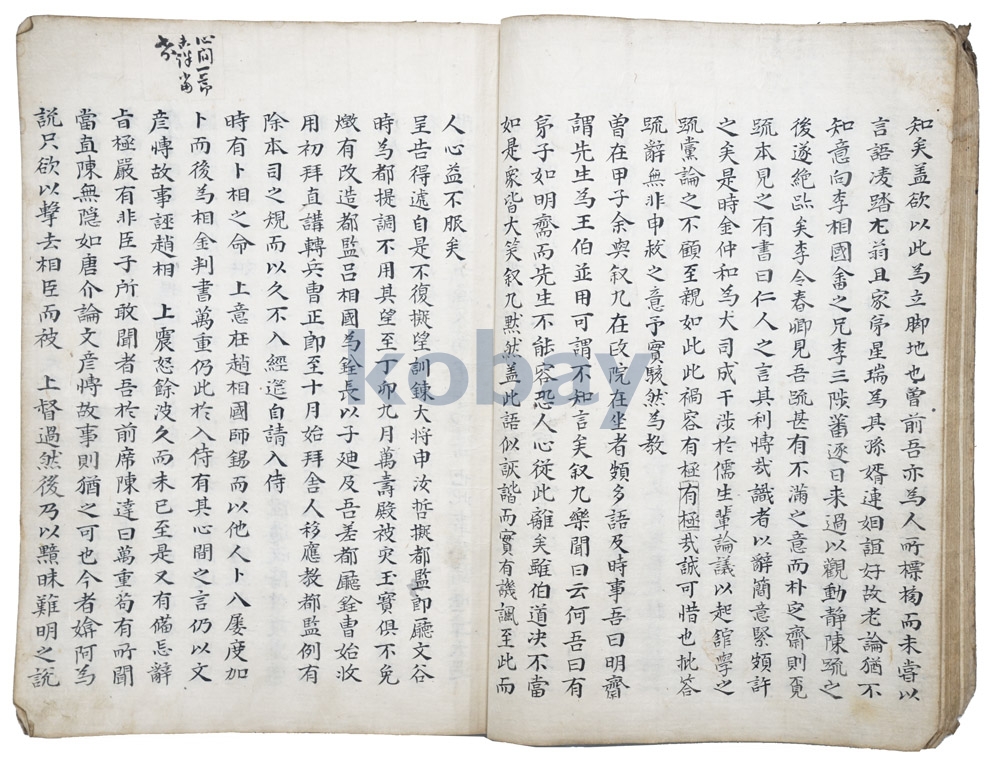 知矣盖欲以此為立脚地也曽前吾亦為人所標榜而未嘗以
言語凌踏尤翁且家亭星瑞為其孫婿連姻誼好故老論猶不
知意向李相國畬之兄李三陟蕃逐日来過以觀動静陳疏之
後遂絶跡矣李令春卿見吾疏甚有不滿之意而朴定齋則覓
疏本見之有書曰仁人之言其利愽哉識者以辭簡意緊頗許
之矣是時金仲和為大司成干涉於儒生軰論議以起舘學之
疏黨論之不顧至親如此此禍容有極有極哉誠可惜也批答
疏辭無非申救之意予實駭然為教
曽在甲子余與叙九在政院在坐者頗多語及時事吾曰明齋
謂先生為王伯並用可謂不知言矣叙九樂聞曰云何吾曰有
弟子如明齋而先生不能容恐人心從此離矣雖伯道决不當
如是衆皆大笑叙九黙然盖此語似詼諧而實有譏諷至此而
人心益不服矣
呈告得遞自是不復擬望訓鍊大将申汝哲擬都監郎廳文谷
時為都提調不用其望至丁卯九月萬壽殿被灾玉寳俱不免
燬有改造都監吕相國為銓長以子廸及吾差都廳銓曺始收
用初拜直講轉兵曺正郎至十月始拜舎人移應教都監例有
除本司之規而以久不入經筵自請入侍
時有卜相之命 上意在趙相國師錫而以他人卜入屡度加
卜而後為相金判書萬重仍此於入侍有其心間之言仍以文
彦愽故事誣趙相 上震怒餘波久而未已至是又有備忘辭
旨極嚴有非臣子所敢聞者吾於前席陳達曰萬重苟有所聞
當直陳無隐如唐介論文彦愽故事則猶之可也今者媕阿為
説只欲以撃去相臣而被 上督過然後乃以黯昧難明之説
心間一節
kobay